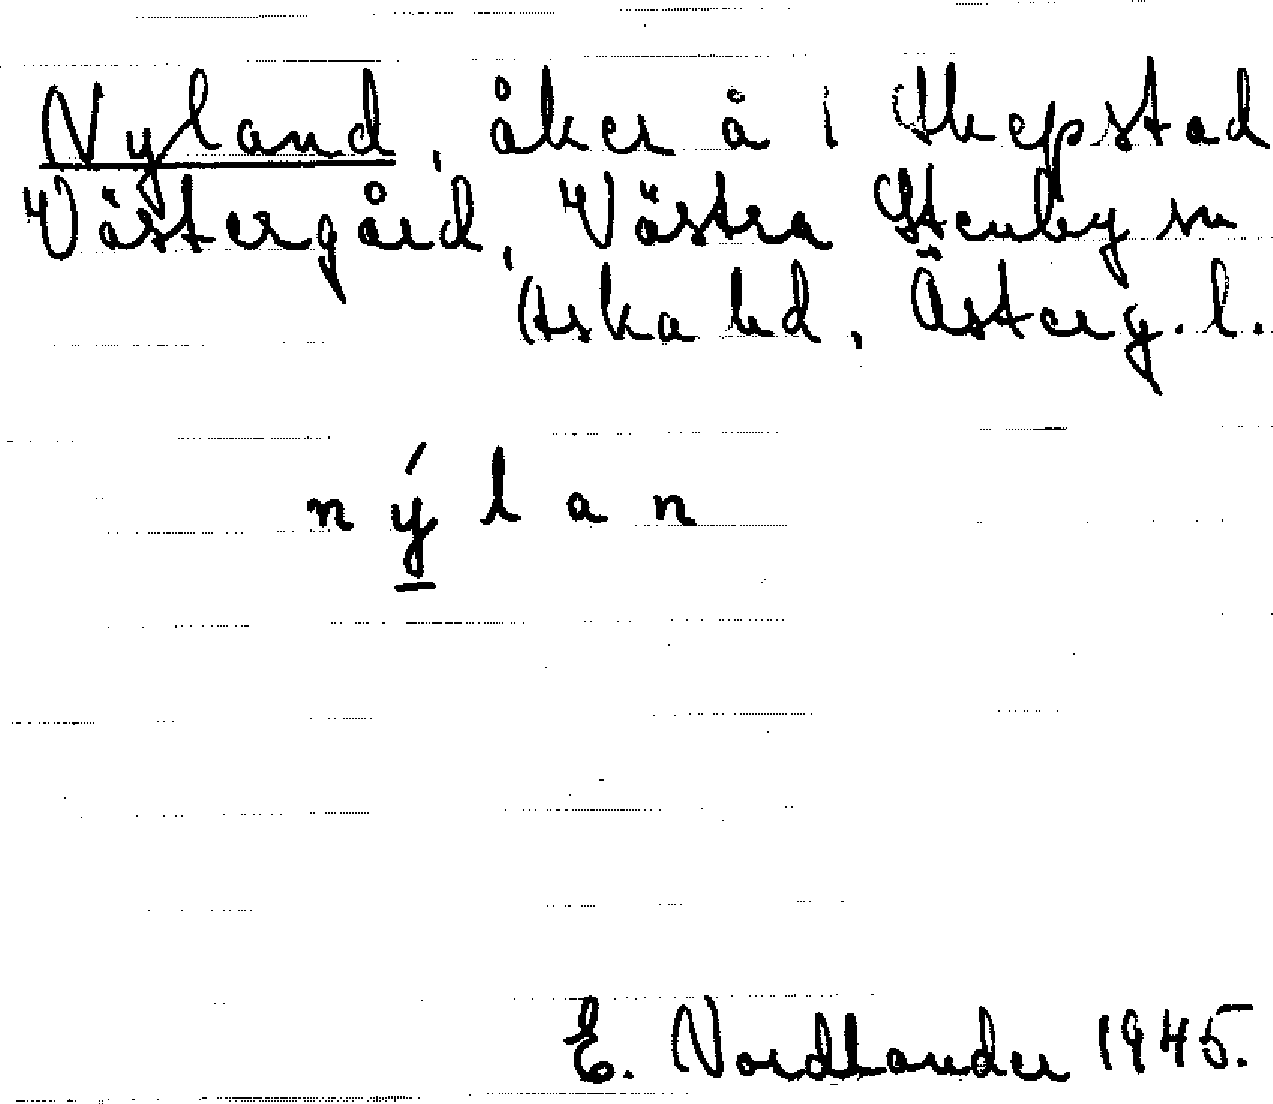 Nyland, åker å i Skepstad
Västergård, Västra Stenby sn
Aska hd, Österg.l.
nýlan
E. Nordlander 1945.